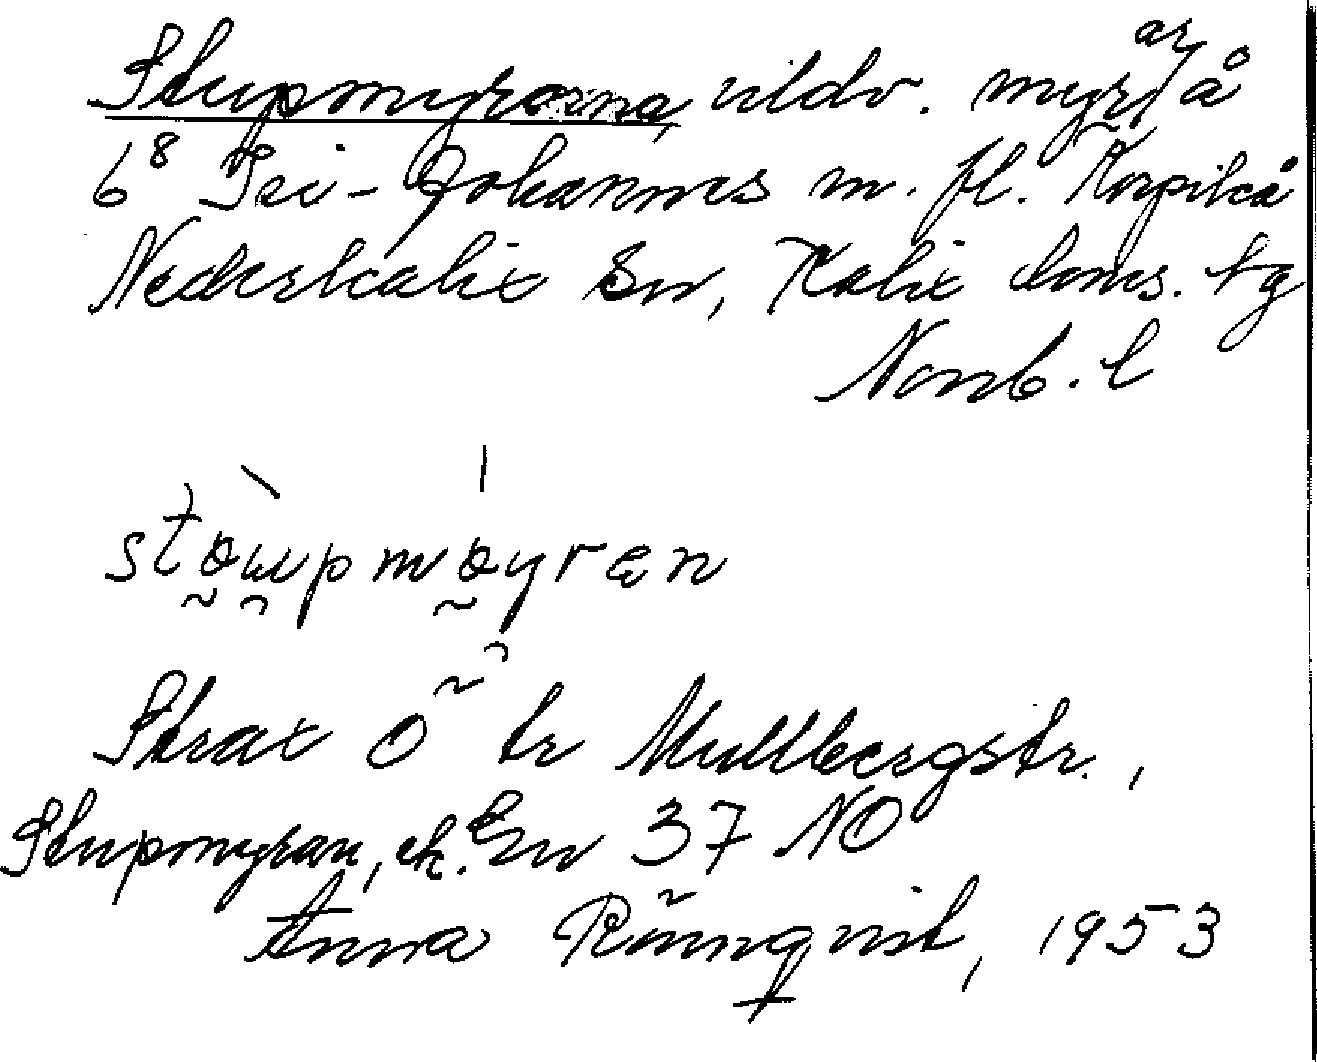 Stupomyrorna, uldv. myr/ar å
6⁸ Pei-Johannes m. fl. Korpikå
Nederkalix Sn, Kalix doms. tg
Norrb. l
støwpmøyræn
Strax Ö tr Mullbergstr.,
Stupomyran, ek. 37 NO
Anna Rönnqvist, 1953